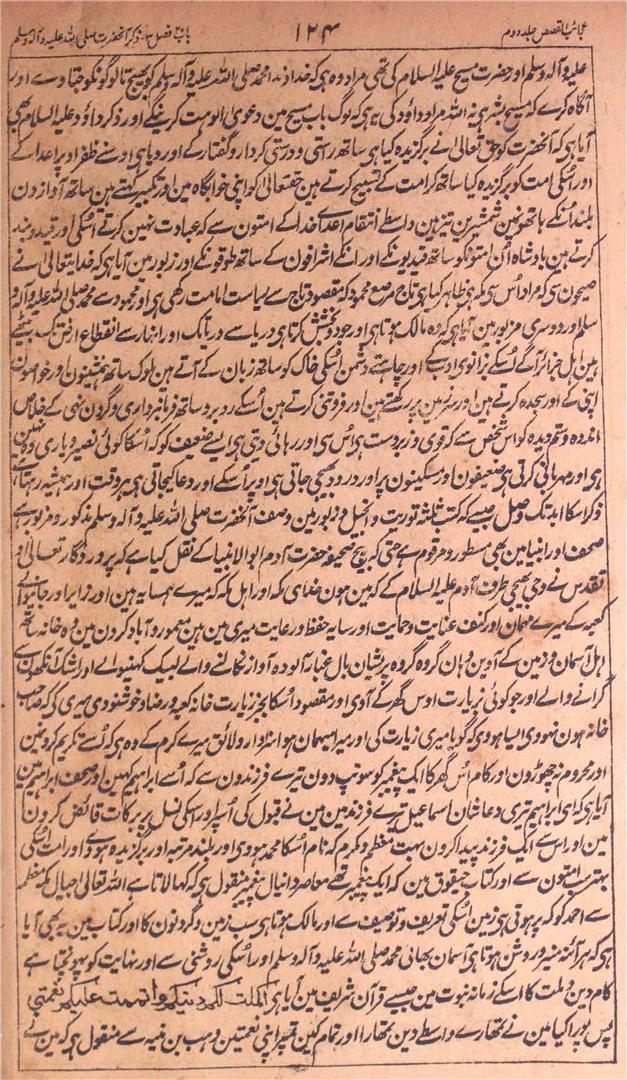 عجائب القصص جلد دوم ۱۲۴ باب۴ فصل ۳ ذکر آنحضرت صلی اللہ علیہ وآلہ وسلم
علیہ وآلہ وسلم اور حضرت مسیح علیہ السلام کی تھی مراد وہ ہی کہ خداوندا محمد صلی اللہ علیہ وآلہ وسلم کو بھیج تا لوگونکو جتاوے اور
آگاہ کرے کہ مسیح بشر ہی نہ اللہ مراد داؤد کی یہ ہی کہ لوگ باب مسیح مین دعویٰ الوہیت کرینگے اور ذکر داؤد علیہ السلام بھی
آیا ہی کہ آنحضرت کو حق تعالیٰ نے برگزیدہ کیا ہی ساتھ رستی و درستی کردار و گفتار کے اور دیا ہی اوسنے ظفر اوپر اعدا کے
اور اُسکی امت کو برگزیدہ کیا ساتھ کرامت کے تسبیح کرتے ہین حقتعالیٰ کو اپنی خوابگاہ مین اور تکبیر کہتے ہین ساتھ آوازون
بلند اُنکے ہاتھونمین شمشیرین تیز ہین واسطے انتقام اعداے خدا کے امتون سے کہ عبادت نہین کرتے اُسکی اور قید و بند
کرتے ہین بادشاہ اُن امتونکو ساتھ قیدیونکے اور انکے اشرافون کے ساتھ طوقونکے اور زبور مین آیا ہی کہ خدا تعالیٰ نے
صیحون سی کہ مراد اُس سی مکہ ہی ظاہر کیا ہی تاج مرصع محمود کہ مقصود تاج سے ریاست امامت رکھی ہی اور محمود سے محمد صلی اللہ علیہ وآلہ و
سلم اور دوسری مزبور مین آیا ہی کہ وہ مالک ہوتا ہی اور جود و بخشش کرتا ہی دریا سے دریا تک اور انہار سے انقطاع ارض تک بیٹھتے
ہین اہل جزائر آگے اُسکے بزانوی ادب کے اور چاٹتے دشمن اُسکی خاک کو ساتھ زبان کے آتے ہین ملوک ساتھ ہمنشینون اور خواصون
اپنی کے اور سجدہ کرتے ہین اور سر زمین پر رکھتے ہین اور فروتنی کرتے ہین اُسکے روبرو ساتھ فرمانبرداری و گردن نہی کے خلاص
اندوہ و ستم دیدہ کو اس شخص سے کہ قوی و زبردست ہی اُس سی اور رہائی دیتی ہی ایسے ضعیف کو کہ اُسکا کوئی نصیر و یاری دہ نہین
ہی اور مہربانی کرتی ہی ضعیفون اور مسکینون پر اور درود بھیجی جاتی ہی اوپر اُسکے اور دعا کیجاتی ہی ہر وقت اور ہمیشہ رہتا ہے
ذکر اسکا ابد تک وصل جیسے کہ کتب ثلثہ توریت و انجیل و زبور مین وصف آنحضرت صلی اللہ علیہ وآلہ وسلم مذکور و مزبور ہے
صحف اور انبیا مین بھی مسطور و مرقوم ہے حتی کہ بیچ صحیفہ حضرت آدم ابو الانبیا کے نقل کیا ہے کہ پروردگار تعالیٰ و
تقدس نے وحی بھیجی طرف آدم علیہ السلام کے کہ مین ہون خدای مکہ اور اہل مکہ کہ میرے ہمسایہ ہین اور زایر اور جانیوالے
کعبہ کے میرے مہمان اور کنف عنایت و حمایت اور سایہ حفظ و رعایت میری مین ہین معمور و آباد کرون مین وہ خانہ ساتھ
اہل آسمان و زمین کے آوین وہان گروہ گروہ پریشان بال غبار آلودہ آواز نکالنے والے لبیک کہنیوالے اور اشک آنکھون سے
گرانے والے اور جو کوئی زیارت اوس گھر نے آوی اور مقصود اُسکا بجز زیارت خانہ کعبہ و رضا و خوشنودی میری کی کہ صاحب
خانہ ہون نہووی ایسا ہووی کہ گویا میری زیارت کی اور میرا میہمان ہوا سزاوار و لائق میرے کرم کے وہ ہی کہ اُسے تکریم کرون مین
اور محروم نہ چھوڑون اور کام اُس گھر کا ایک پیغمبر کو سونپ دون تیرے فرزندون سے کہ اُسے ابراہیم کہین اور صحف ابراہیم مین
آیا ہی کہ ای ابراہیم تیری دعا شان اسماعیل تیرے فرزند مین مین نے قبول کی اُسپر اور اسکی نسل پر برکات فائض کرون
مین اور اس سے ایک فرزند پیدا کرون بہت معظم و مکرم کہ نام اُسکا محمد ہووی اور بلند مرتبہ اور برگزیدہ ہووے اور امت اُسکی
بہتر سب امتون سے اور کتاب حیقوق مین کہ ایک پیغمبر تھے معاصر دانیال پیغمبر منقول ہی کہ کہا لاتا ہے اللہ تعالیٰ جبال مکہ معظمہ
سے احمد کو کہ پر ہوتی ہی زمین اُسکی تعریف و توصیف سے اور مالک ہوتا ہی سب زمین و گردنون کا اور کتاب مین یہ بھی آیا
ہی کہ ہر آئنہ منیر و روشن ہوتا ہی آسمان بھائی محمد صلی اللہ علیہ وآلہ وسلم اور اُسکی روشنی سے اور نہایت کو پہونچتا ہے
کام دین و ملت کا اسکے زمانہ نبوت مین جیسے قرآن شریف مین آیا ہی اکملت لکم دینکم واتممت علیکم نعمتی
پس پورا کیا مین نے تمھارے واسطے دین تمھارا اور تمام کین تمپر اپنی نعمتین وہب بن منبہ سے منقول ہی کہ مین نے